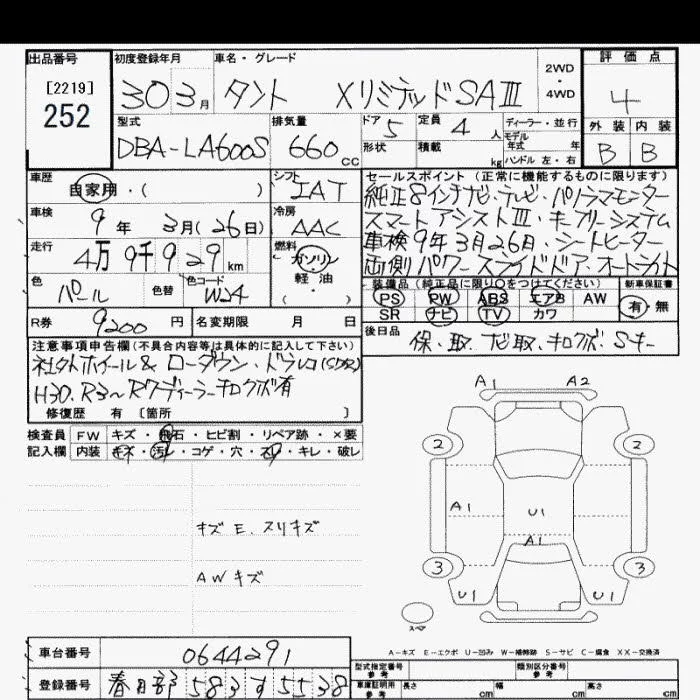 出品番号 初度登録年月 車名・グレード 2WD ・ 4WD 評価点
[2219]
252
30 3月 タント XリミテッドSAⅢ 4
型式 排気量 ドア 5 定員 4人 ディーラー・並行 外装 内装
モデル年式 年
DBA-LA600S 660cc 形状 積載 kg ハンドル 左・右 B B
車歴 シフト セールスポイント (正常に機能するものに限ります)
自家用・( ) IAT 純正8インチナビ・テレビ・パノラマモニター
車検 冷房 スマートアシストⅢ・キーフリーシステム
9年 3月(26日) AAC 車検9年3月26日・シートヒーター
走行 燃料 両側パワースライドドア・オートライト
4万9千929km ガソリン
軽油
( )
色 色替 色コード 装備品(純正品に限り○をつけてください) 新車保証書
パール W24 PS PW ABS エアB AW 有・無
SR ナビ TV カワ
R券 9200円 名変期限 月 日 後日品
保・取・ナビ取・キロクボ・Sキー
注意事項申告欄(不具合内容等は具体的に記入して下さい)
社外ホイール&ローダウン・ドラレコ(SD欠)
H30.R3〜R7ディーラーキロクボ有
修復歴 有 [箇所 ]
検査員 FW キズ・飛石・ヒビ割・リペア跡・×要
記入欄 内装 キズ・汚レ・コゲ・穴・スレ・キレ・破レ
A1 A2
2 2
A1 U1
キズE.スリキズ
A1
3 3
AWキズ
U1 U1
スペア
A-キズ E-エクボ U-凹み W-補修跡 S-サビ C-腐食 XX-交換済
車台番号 0644291 型式指定番号 参考 類別区分番号 参考
登録番号 春日部 583 す 5538 車庫証明用 参考 長さ cm 幅 cm 高さ cm